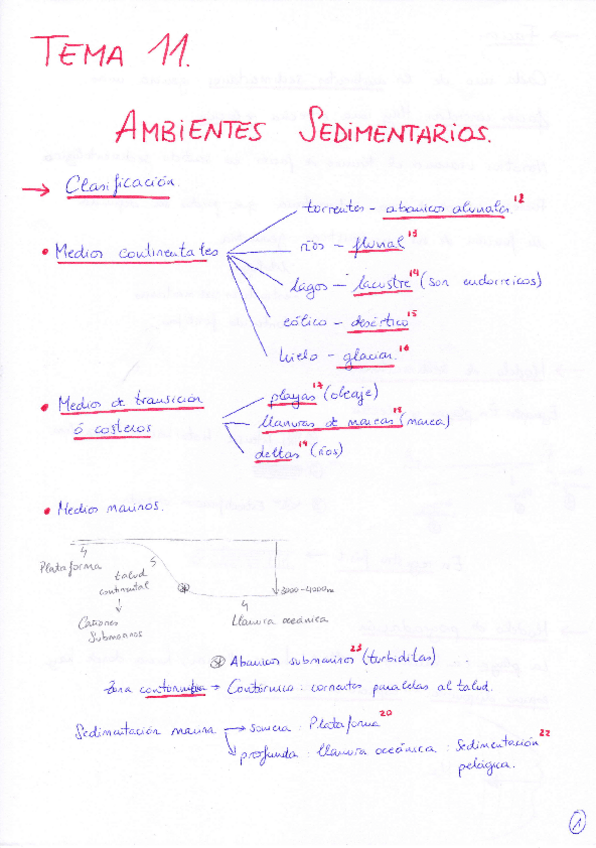 TEMA 11.
AMBIENTES SEDIMENTARIOS.
→ Clasificación.
• Medios continentales
torrentes - abanicos aluviales. 12
ríos - fluvial 13
lagos - lacustre 14 (son endorreicos)
eólico - desértico 15
hielo - glaciar. 16
• Medios de transición
ó costeros
playas 17 (oleaje)
llanuras de mareas 18 (marea)
deltas 19 (ríos)
• Medios marinos.
Plataforma
talud
continental
3000-4000m
Cañones
Submarinos
Llanura oceánica
* Abanicos submarinos 23 (turbiditas)
Zona → Contórnica: corrientes paralelas al talud.
Sedimentación marina → somera: Plataforma 20
→ profunda: llanura oceánica: Sedimentación 22
pelágica.
1